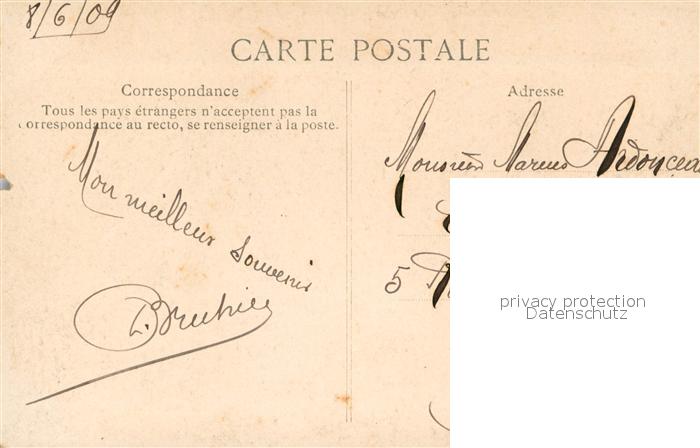 8/6/09
CARTE POSTALE
Correspondance
Tous les pays étrangers n'acceptent pas la
correspondance au recto, se renseigner à la poste.
Mon meilleur
souvenir
Adresse
Monsieur Marius
5
privacy protection
Datenschutz